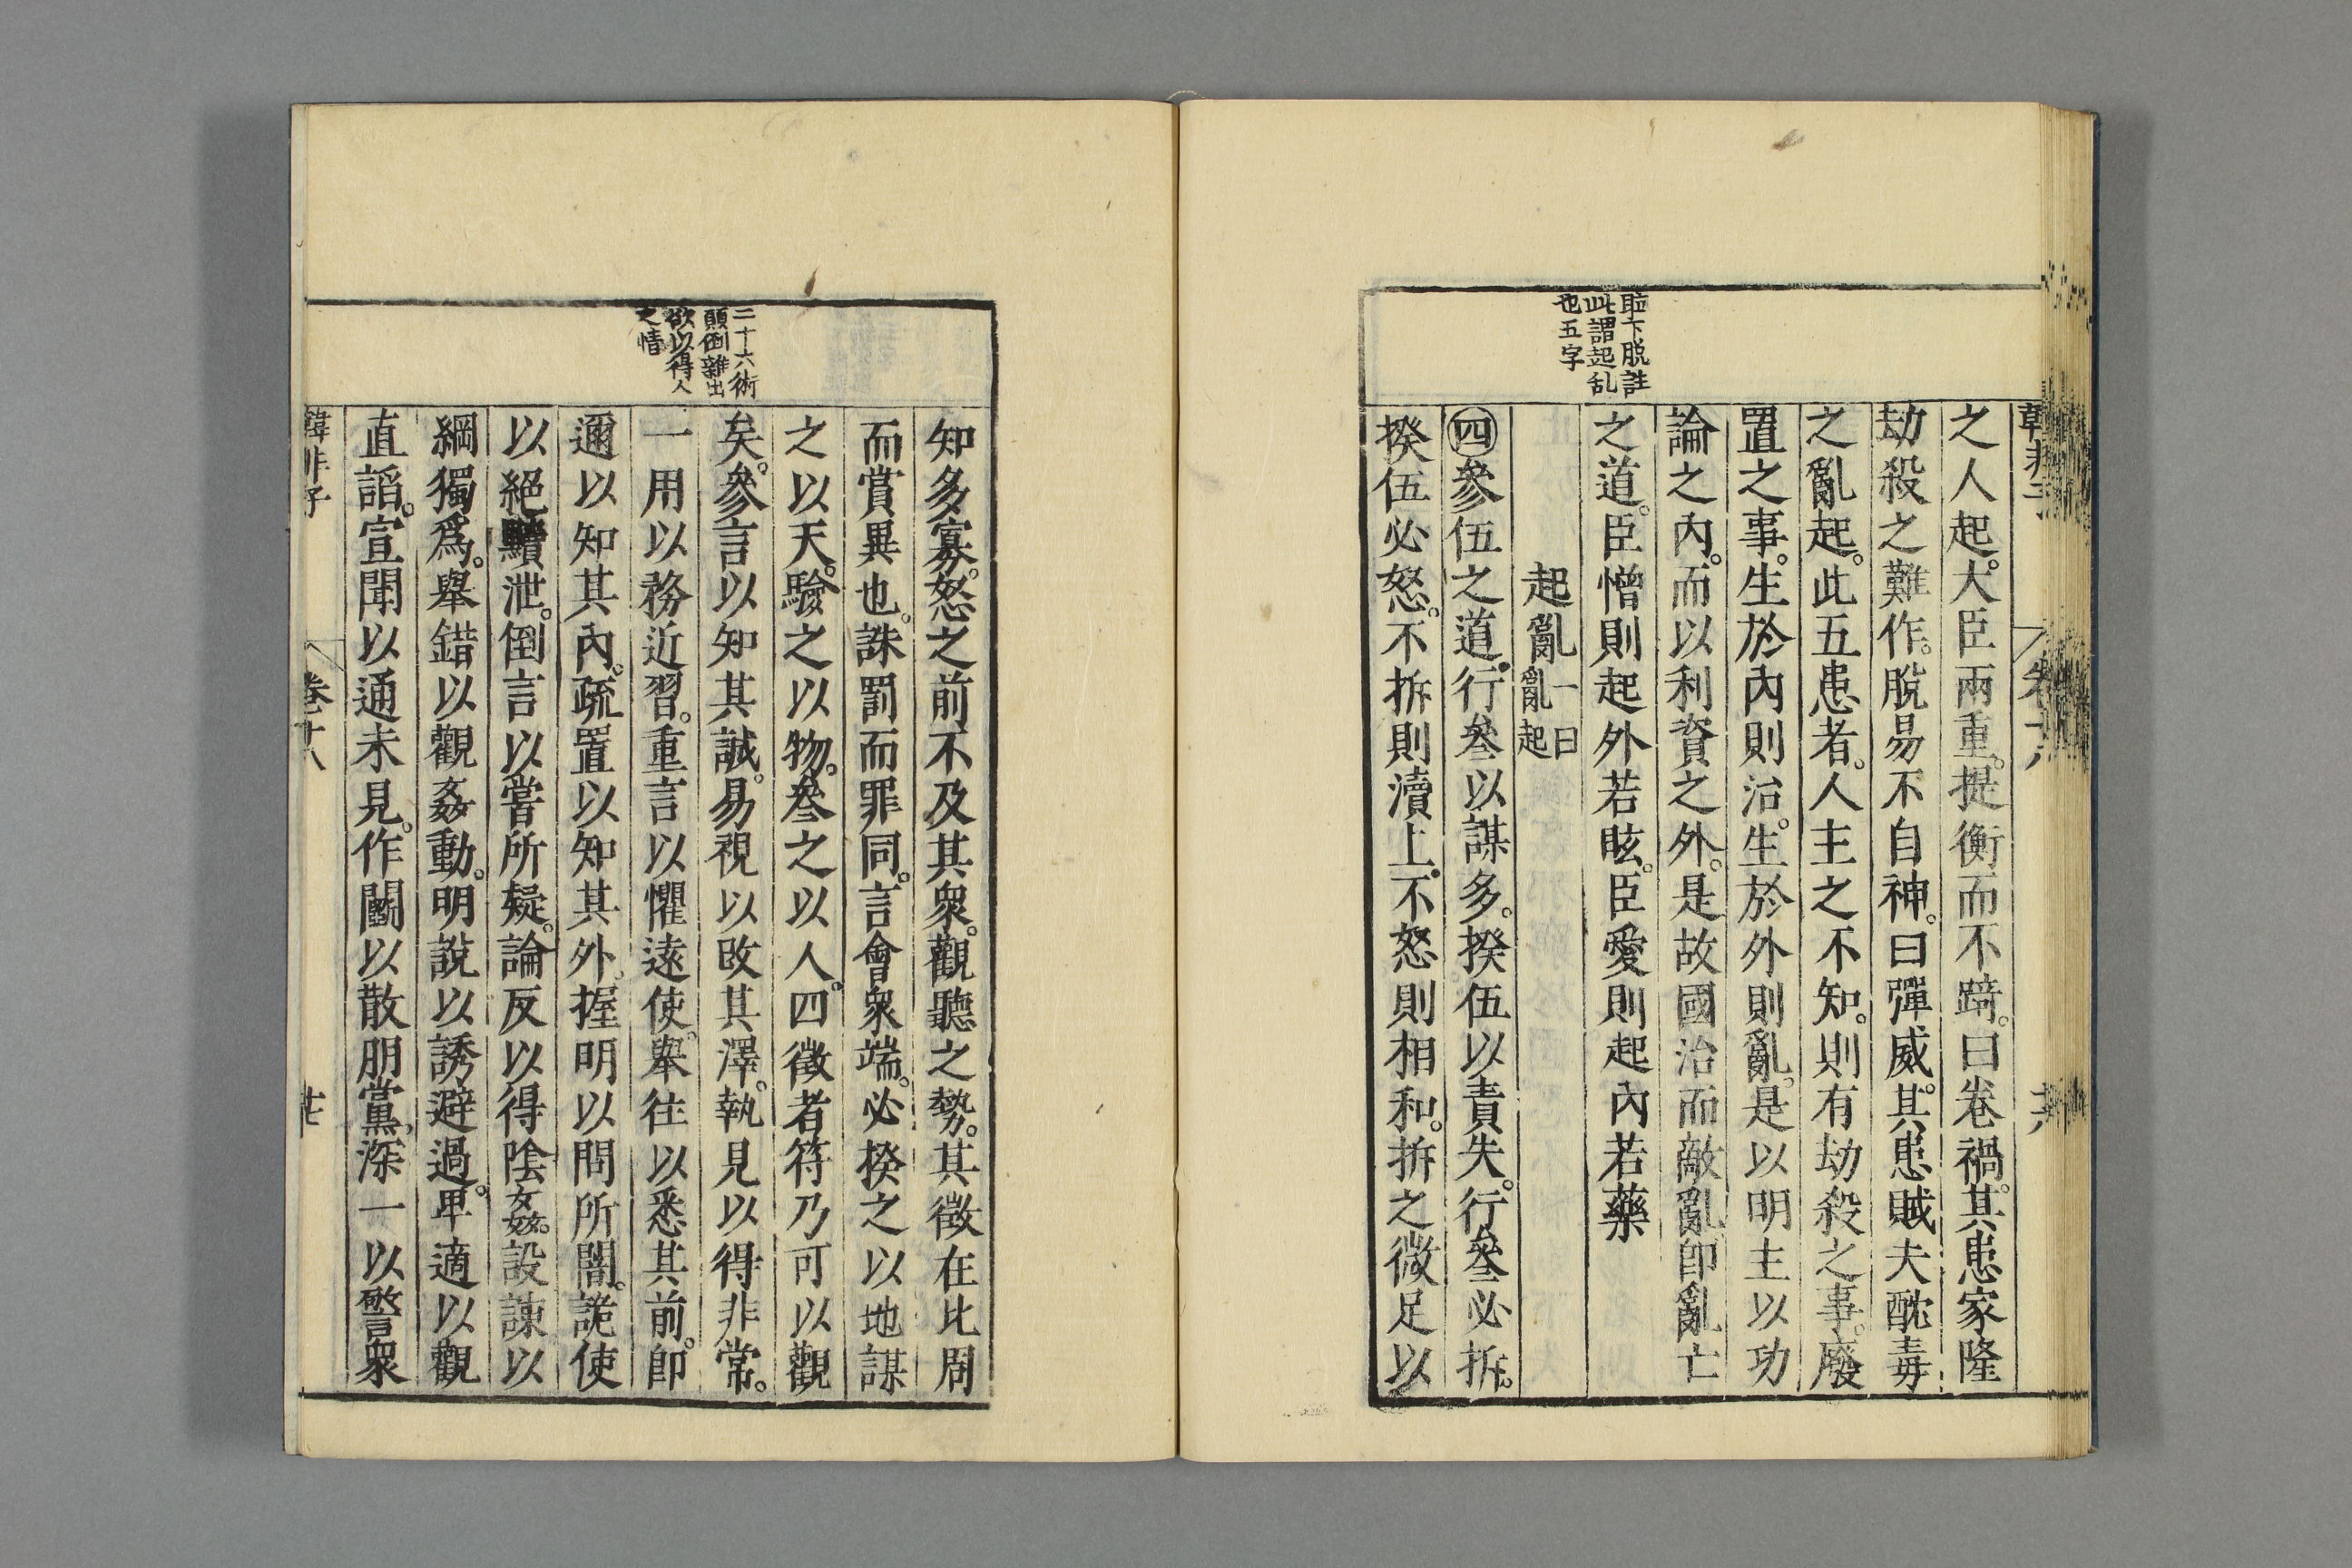 韓非子
卷十八
十六
之人起。大臣兩重。提衡而不踦。曰卷禍。其患家隆
劫殺之難作。脫易不自神。曰彈威。其患賊夫酖毒
之亂起。此五患者。人主之不知。則有劫殺之事。廢
置之事。生於內則治。生於外則亂。是以明主以功
論之內。而以利資之外。是故國治而敵亂。卽亂亡
之道。臣憎則起外若眩。臣愛則起內若藥
起亂一曰亂起
㊃參伍之道。行叄以謀多。揆伍以責失。行叄必拆。
揆伍必怒。不拆則瀆上。不怒則相和。拆之微足以
眩下脱註
此謂起乱
也五字
知多寡。怒之前不及其衆。觀聽之勢。其徵在比周
而賞異也。誅罰而罪同。言會衆端。必揆之以地謀
之以天。驗之以物。叄之以人。四徵者符乃可以觀
矣。參言以知其誠。易視以改其澤。執見以得非常。
一用以務近習。重言以懼遠使。舉往以悉其前。卽
邇以知其內。疏置以知其外。握明以問所闇。詭使
以絕黷泄。倒言以嘗所疑。論反以得陰姦。設諫以
綱獨爲。舉錯以觀姦動。明說以誘避過。卑適以觀
直諂。宣聞以通未見。作鬭以散朋黨。深一以警衆
二十六術
顛倒雜出
欲以得人
之情
韓非子
卷十八
廿七